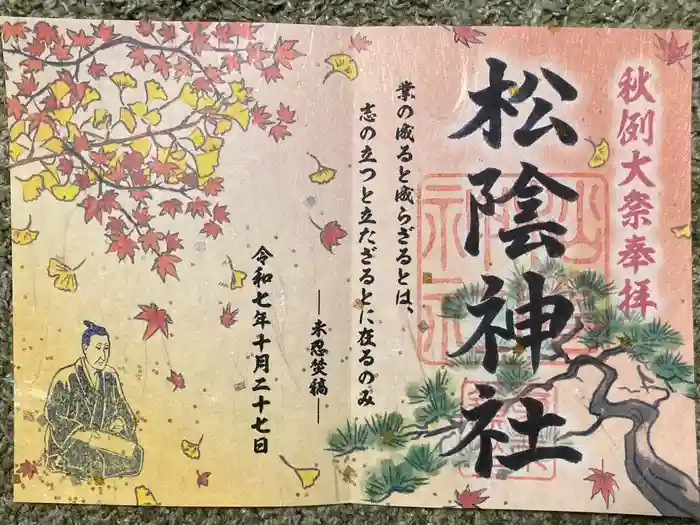 秋例大祭奉拝
松陰神社
業の成ると成らざるとは、
志の立つと立たざるとに在るのみ
―未忍焚稿―
令和七年十月二十七日